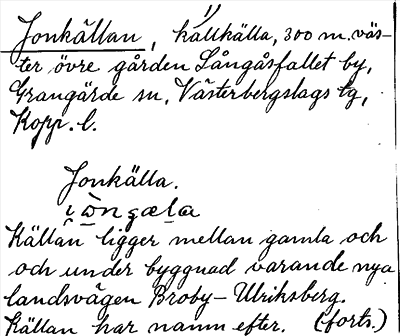 Jonkällan, kallkälla, 300 m. väs-
ter övre gården Långåsfallet by,
Grangärde sn, Västerbergslags tg,
Kopp. l.
Jonkälla.
Källan ligger mellan gamla och
och under byggnad varande nya
landsvägen Broby–Ulriksberg.
Källan har namn efter. (forts.)